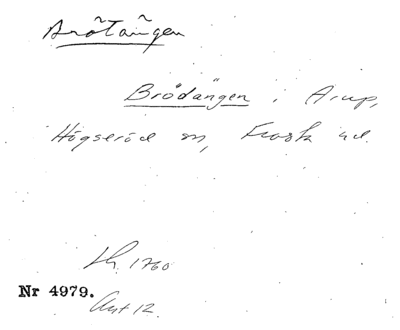 Brötängen
Brödängen i Arup,
Högseröd sn, Frosta hd.
Lh. 1760
Nr 4979.
Akt 12.